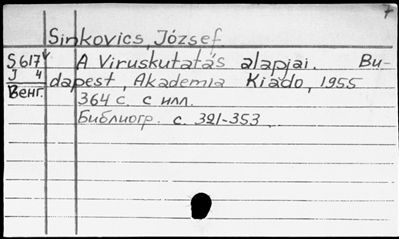 7
Sinkovics, József
S617 A Viruskutatás alapjai. Bu-
J 4 dapest, Akademia Kiado, 1955
Венг. 364 с. с илл.
Библиогр. с. 321-353